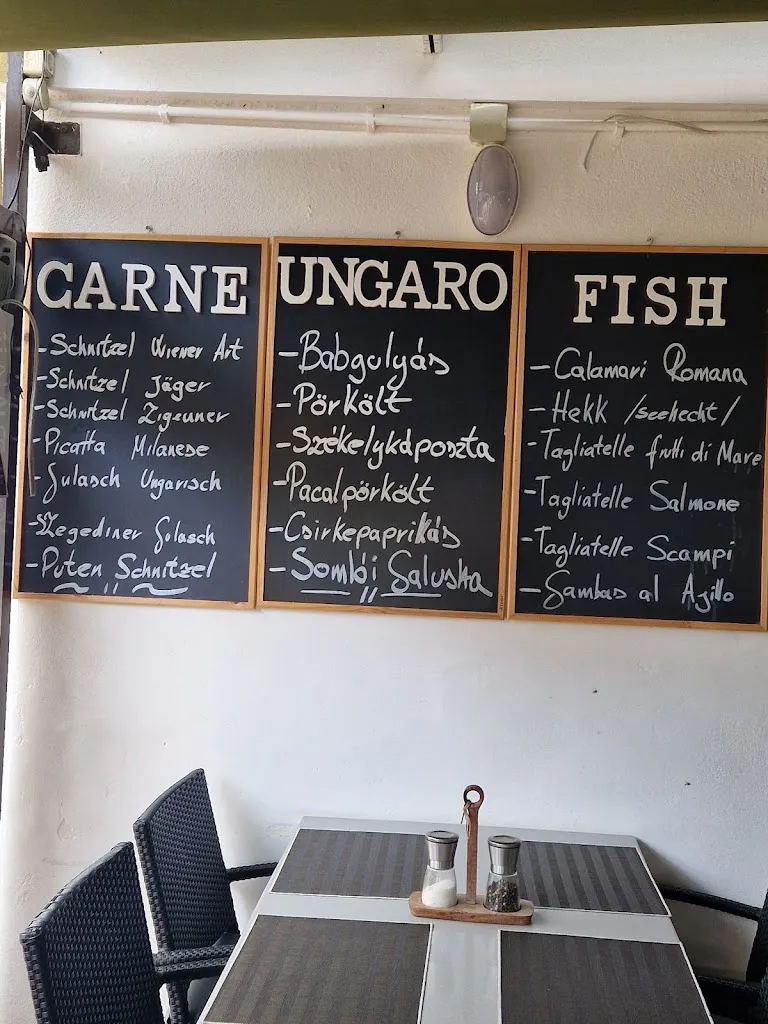 CARNE
-Schnitzel Wiener Art
-Schnitzel Jäger
-Schnitzel Zigeuner
-Picatta Milanese
-Gulasch Ungarisch
-Szegediner Gulasch
-Puten Schnitzel
UNGARO
-Babgulyás
-Pörkölt
-Székelykáposzta
-Pacalpörkölt
-Csirkepaprikás
-Sombi Saluska
FISH
-Calamari Romana
-Hekk /seehecht/
-Tagliatelle frutti di Mare
-Tagliatelle Salmone
-Tagliatelle Scampi
-Gambas al Ajillo